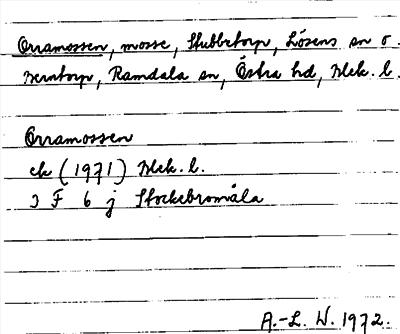 Orramossen, mosse, Stubbetorp, Lösens sn o.
Berntorp, Ramdala sn, Östra hd, Blek. l.
Orramossen
ek (1971) Blek. l.
3 F 6 j Stockebromåla
A.-L. W. 1972.